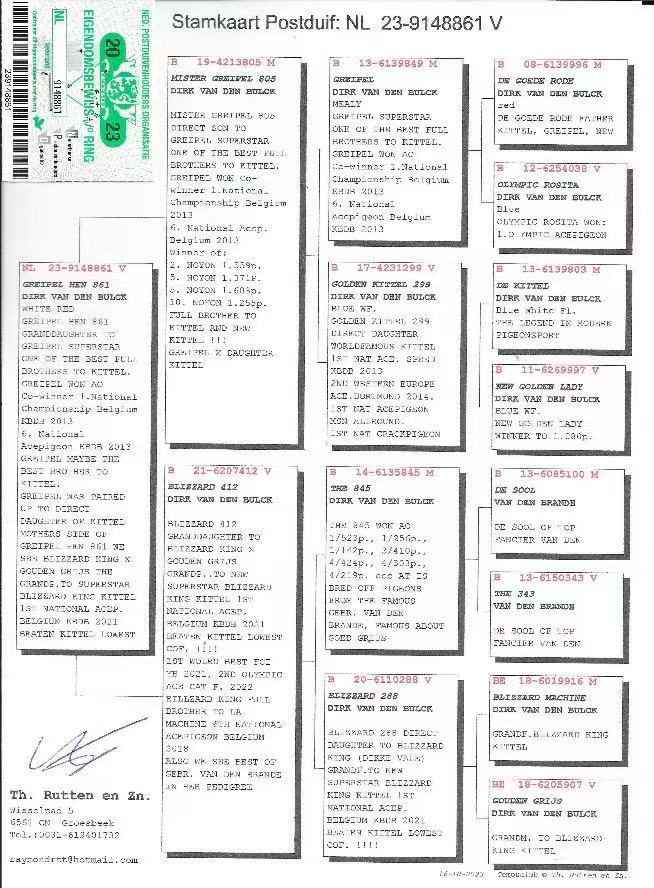 Stamkaart Postduif: NL 23-9148861 V
NED. POSTDUIVENHOUDERS ORGANISATIE
20 23
EIGENDOMSBEWIJS V/D RING
NL
9148861
239148861
NL 23-9148861 V
GREIPEL HEN 861
DIRK VAN DEN BULCK
WHITE RED
GREIPEL HEN 861
GRANDDAUGHTER TO
GREIPEL SUPERSTAR
ONE OF THE BEST FULL
BROTHERS TO KITTEL.
GREIPEL WON AO
Co-winner 1.National
Championship Belgium
KBDB 2013
6. National
Acepigeon KBDB 2013
GREIPEL MAYBE THE
BEST BROTHER TO
KITTEL.
GREIPEL WAS PAIRED
UP TO DIRECT
DAUGHTER OF KITTEL
MOTHERS SIDE OF
GREIPEL HEN 861 WE
SEE BLIZZARD KING X
GOUDEN GRIJS THE
GRANDP.TO SUPERSTAR
BLIZZARD KING KITTEL
1ST NATIONAL ACEP.
BELGIUM KBDB 2021
BEATEN KITTEL LOWEST
B 19-4213805 M
MISTER GREIPEL 805
DIRK VAN DEN BULCK
MISTER GREIPEL 805
DIRECT SON TO
GREIPEL SUPERSTAR
ONE OF THE BEST FULL
BROTHERS TO KITTEL.
GREIPEL WON Co-
winner 1.National
Championship Belgium
2013
6. National Acep.
Belgium 2013
Winner of:
2. NOYON 1.559p.
5. NOYON 1.371p.
5. NOYON 1.603p.
10. NOYON 1.255p.
FULL BROTHER TO
KITTEL AND NEW
KITTEL !!!
GREIPEL X DAUGHTER
KITTEL
B 21-6207412 V
BLIZZARD 412
DIRK VAN DEN BULCK
BLIZZARD 412
GRANDDAUGHTER TO
BLIZZARD KING X
GOUDEN GRIJS
GRANDP..TO NEW
SUPERSTAR BLIZZARD
KING KITTEL 1ST
NATIONAL ACEP.
BELGIUM KBDB 2021
BEATEN KITTEL LOWEST
COF. !!!!
1ST WOLRD BEST FCI
YH 2021, 2ND OLYMPIC
ACE CAT F. 2022
BILLZARD KING FULL
BROTHER TO LA
MACHINE 6TH NATIONAL
ACEPIGEON BELGIUM
2018
ALSO WE SEE BEST OF
GEBR. VAN DEN BRANDE
IN HER PEDIGREE
B 13-6139849 M
GREIPEL
DIRK VAN DEN BULCK
MEALY
GREIPEL SUPERSTAR
ONE OF THE BEST FULL
BROTHERS TO KITTEL.
GREIPEL WON AO
Co-winner 1.National
Championship Belgium
KBDB 2013
6. National
Acepigeon Belgium
KBDB 2013
B 17-4231299 V
GOLDEN KITTEL 299
DIRK VAN DEN BULCK
BLUE WF.
GOLDEN KITTEL 299
DIRECT DAUGHTER
WORLDFAMOUS KITTEL
1ST NAT ACE. SPEED
KBDB 2013
2ND WESTERN EUROPE
ACE.DORTMUND 2014.
1ST NAT ACEPIGEON
MSN ALLROUND.
1ST NAT CRACKPIGEON
B 14-6135845 M
THE 845
DIRK VAN DEN BULCK
THE 845 WON AO
1/523p., 1/256p.,
1/142p., 3/410p.,
4/424p., 4/303p.,
4/219p. aco AT IS
BRED OFF PIGEONS
FROM THE FAMOUS
GEBR. VAN DEN
BRANDE, FAMOUS ABOUT
GOED GRIJS
B 20-6110288 V
BLIZZARD 288
DIRK VAN DEN BULCK
BLIZZARD 288 DIRECT
DAUGHTER TO BLIZZARD
KING (DIKKE VALE)
GRANDF.TO NEW
SUPERSTAR BLIZZARD
KING KITTEL 1ST
NATIONAL ACEP.
BELGIUM KBDB 2021
BEATEN KITTEL LOWEST
COF. !!!!
B 08-6139996 M
DE GOEDE RODE
DIRK VAN DEN BULCK
red
DE GOEDE RODE FATHER
KITTEL, GREIPEL, NEW
B 12-6254038 V
OLYMPIC ROSITA
DIRK VAN DEN BULCK
Blue
OLYMPIC ROSITA WON:
1.OLYMPIC ACEPIGEON
B 13-6139803 M
DE KITTEL
DIRK VAN DEN BULCK
Blue White Fl.
THE LEGEND IN MODERN
PIGEONSPORT
B 11-6269997 V
NEW GOLDEN LADY
DIRK VAN DEN BULCK
BLUE WF.
NEW GOLDEN LADY
WINNER TO 1.080p.
B 13-6085100 M
DE SOOL
VAN DEN BRANDE
DE SOOL OF TOP
FANCIER VAN DEN
B 13-6150343 V
THE 343
VAN DEN BRANDE
DE SOOL OF TOP
FANCIER VAN DEN
BE 18-6019916 M
BLIZZARD MACHINE
DIRK VAN DEN BULCK
GRANDF.BLIZZARD KING
KITTEL
BE 18-6205907 V
GOUDEN GRIJS
DIRK VAN DEN BULCK
GRANDM. TO BLIZZARD
KING KITTEL
Th. Rutten en Zn.
Wisselpad 5
6561 CN Groesbeek
Tel.:0031-619401732
raymondrtt@hotmail.com
16-10-2023 Compuclub © Th. Rutten en Zn.